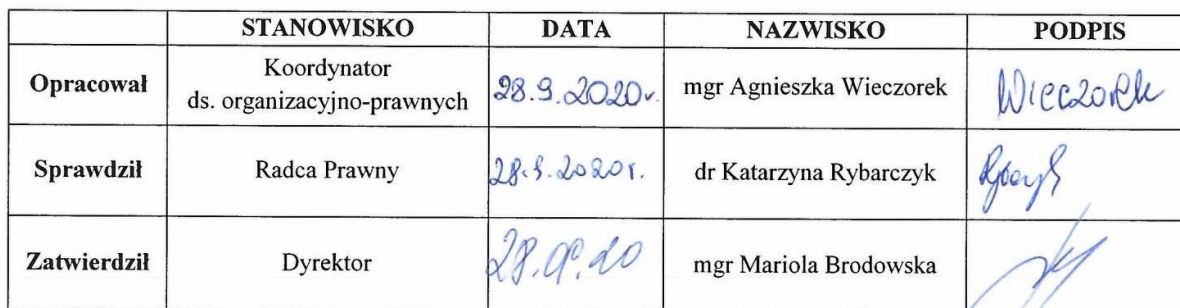 STANOWISKO DATA NAZWISKO PODPIS
Opracował Koordynator ds. organizacyjno-prawnych 28.9.2020r. mgr Agnieszka Wieczorek Wieczorek
Sprawdził Radca Prawny 28.9.2020r. dr Katarzyna Rybarczyk
Zatwierdził Dyrektor 28.09.20 mgr Mariola Brodowska